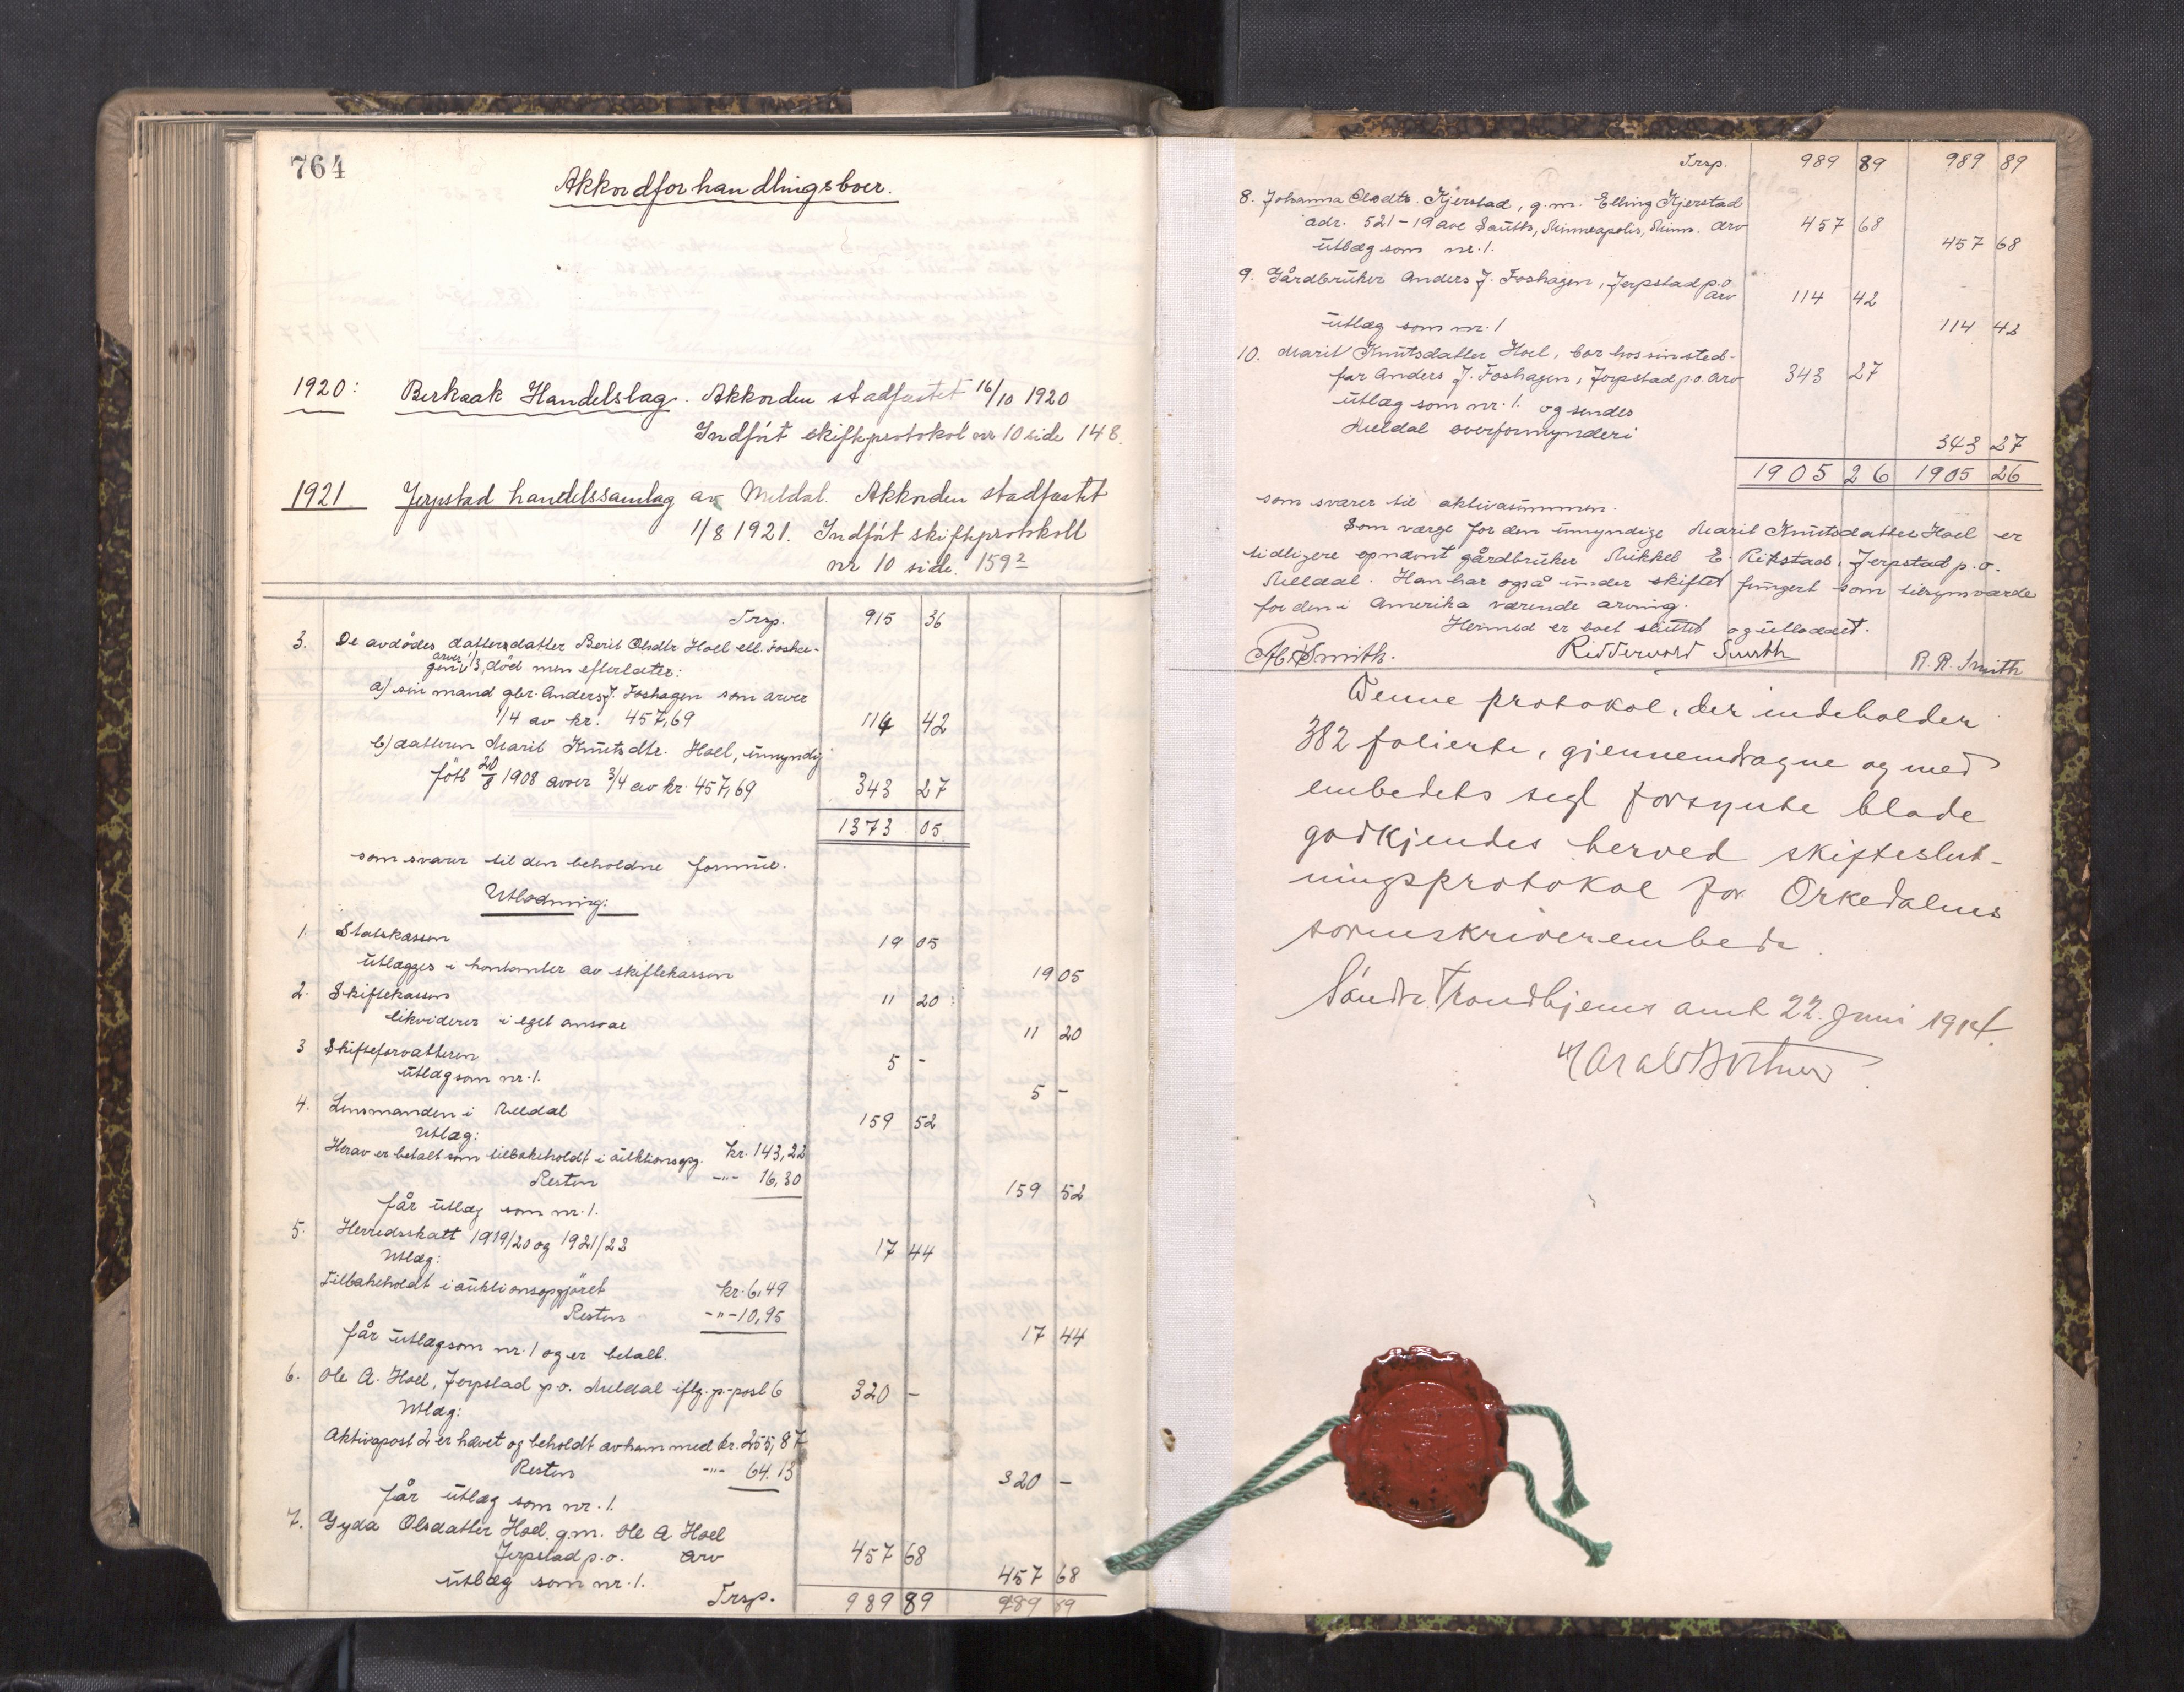 764
Akkordforhandlingsboer.
1920: Berkaak Handelslag. Akkorden stadfæstet 16/10 1920
Indført skifteprotokol nr 10 side 148.
1921. Jerpstad handelssamlag av Meldal. Akkorden stadfæstet
1/8 1921. Indført skifteprotokoll
nr 10 side 159²
Trsp. 915 36
3. De avdødes dattersdatter Berit Olsdtr. Hoel ell. Fosha-
arver 1/3
gen, død men efterlater:
a) sin mand gbr. Anders J. Foshagen som arver
1/4 av kr. 457,69 114 42
b) datteren Marit Knutsdtr. Hoel, umyndig
født 20/8 1908 arver 3/4 av kr. 457,69 343 27
1373 05
som svarer til den beholdne formue.
Utlodning:
1. Statskassen 19 05
utlægges i kontanter av skiftekassen 19 05
2. Skiftekassen 11 20
likviderer i eget ansvar 11 20
3 Skifteforvalteren 5 -
utlæg som nr. 1. 5 -
4. Lensmanden i Meldal 159 52
Utlæg:
Herav er betalt som tilbakeholdt i auktionsopg. kr. 143,22
Resten -"- 16,30 159 52
får utlæg som nr. 1.
5. Herredsskatt 1919/20 og 1921/22 17 44
Utlæg:
Tilbakeholdt i auktionsopgjöret kr. 6,49
Resten -"- 10,95
får utlæg som nr. 1 og er betalt. 17 44
6. Ole A. Hoel, Jerpstad p.o. Meldal iflg. p-post 6 320 -
Utlæg:
Aktivapost 2 er hævet og beholdt av ham med kr. 255,87
Resten -"- 64.13 320 -
får utlæg som nr. 1.
7. Gyda Olsdatter Hoel, g.m. Ole A. Hoel
Jerpstad p.o. arv 457 68
utlæg som nr. 1. 457 68
Trsp. 989 89 989 89
Trsp. 989 89 989 89
8. Johanna Olsdtr. Kjerstad, g.m. Elling Kjerstad
adr. 521-19 ave South, Minneapolis, Minn. arv 457 68
utlæg som nr. 1. 457 68
9. Gårdbruker Anders J. Foshagen, Jerpstad p.o.
arv 114 42
utlæg som nr. 1 114 42
10. Marit Knutsdatter Hoel, bor hos sin sted-
far Anders J. Foshagen, Jerpstad p.o. arv 343 27
utlæg som nr. 1. og sendes
Meldal overformynderi 343 27
1905 26 1905 26
som svarer til aktivasummen.
Som værge for den umyndige Marit Knutsdatter Hoel er
tidligere opnævnt gårdbruker Mikkel E. Rikstad, Jerpstad p.o.
Meldal. Han har også under skiftet fungert som tilsynsværge
for den i Amerika værende arving.
Hermed er boet sluttet og utloddet.
Smith. Riddervold Smith R. R. Smith
Denne protokol, der indeholder
382 folierte, gjennemdragne og med
embedets segl forsynte blade
godkjendes herved skifteslut-
ningsprotokol for Orkedalens
sorenskriverembede.
Søndre Trondhjems amt 22. juni 1914.
Harald Bothner